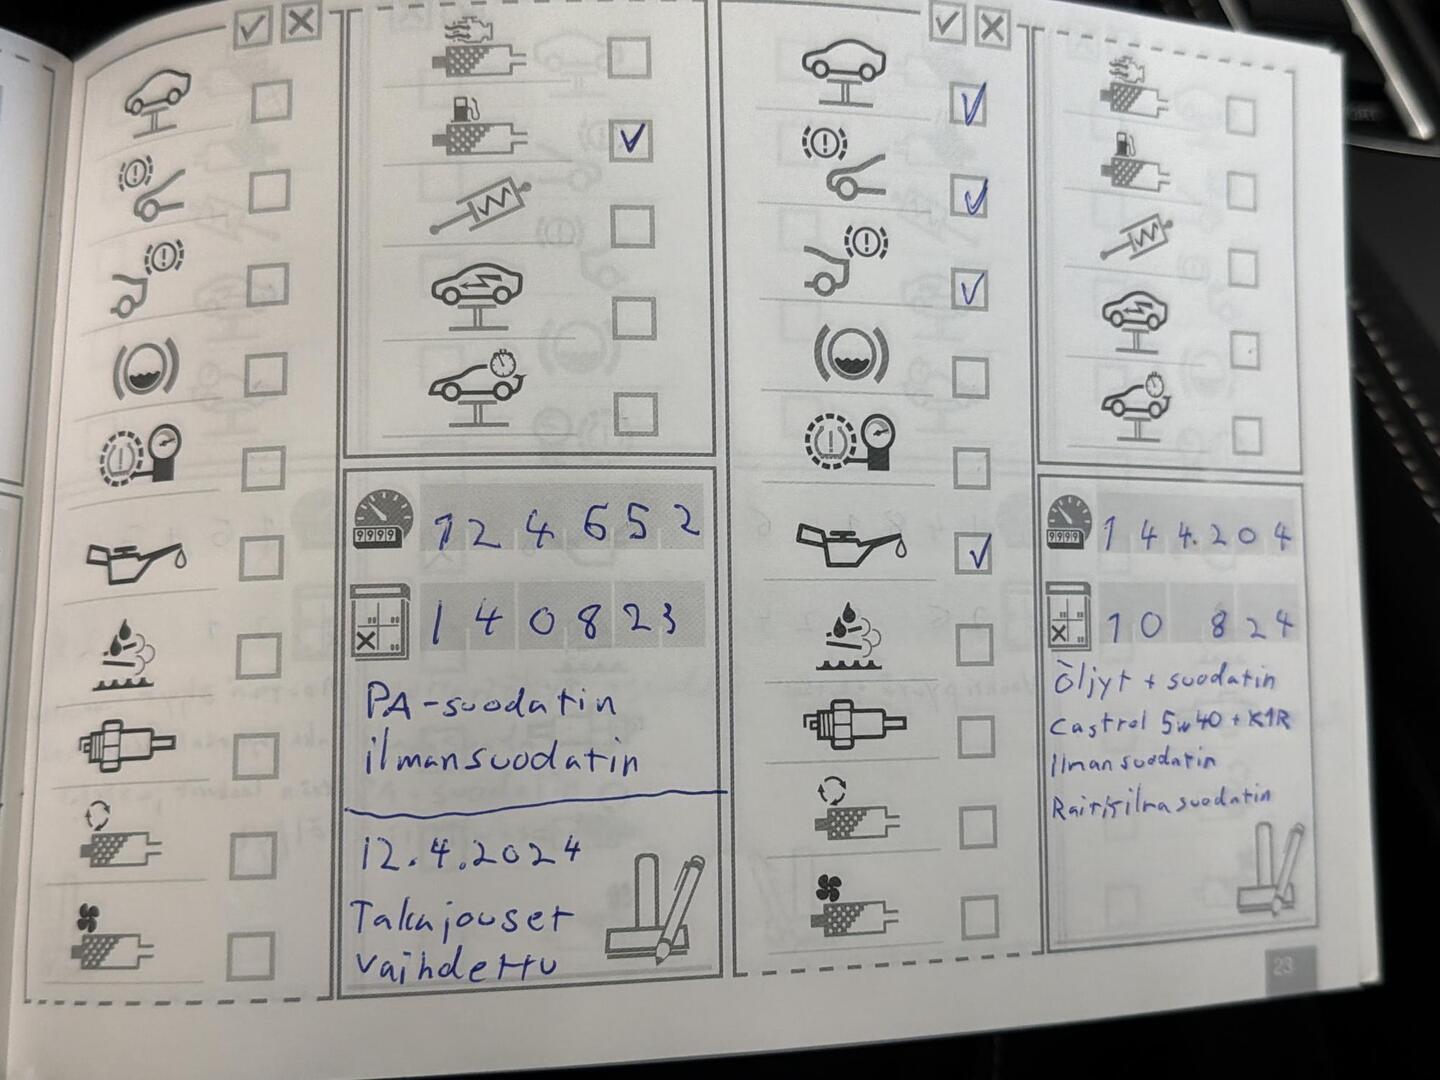 9999
124652
140823
PA-suodatin
ilmansuodatin
12.4.2024
Takajouset
vaihdettu
9999
144.204
10 824
Öljyt + suodatin
Castrol 5w40 + K1R
Ilmansuodatin
Raitisilmasuodatin
23